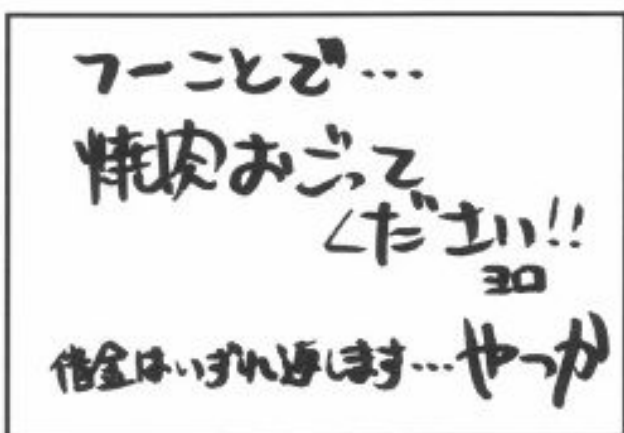 フーことで…
焼肉おごって
ください!!
ヨロ
借金はいずれ返します…やっか